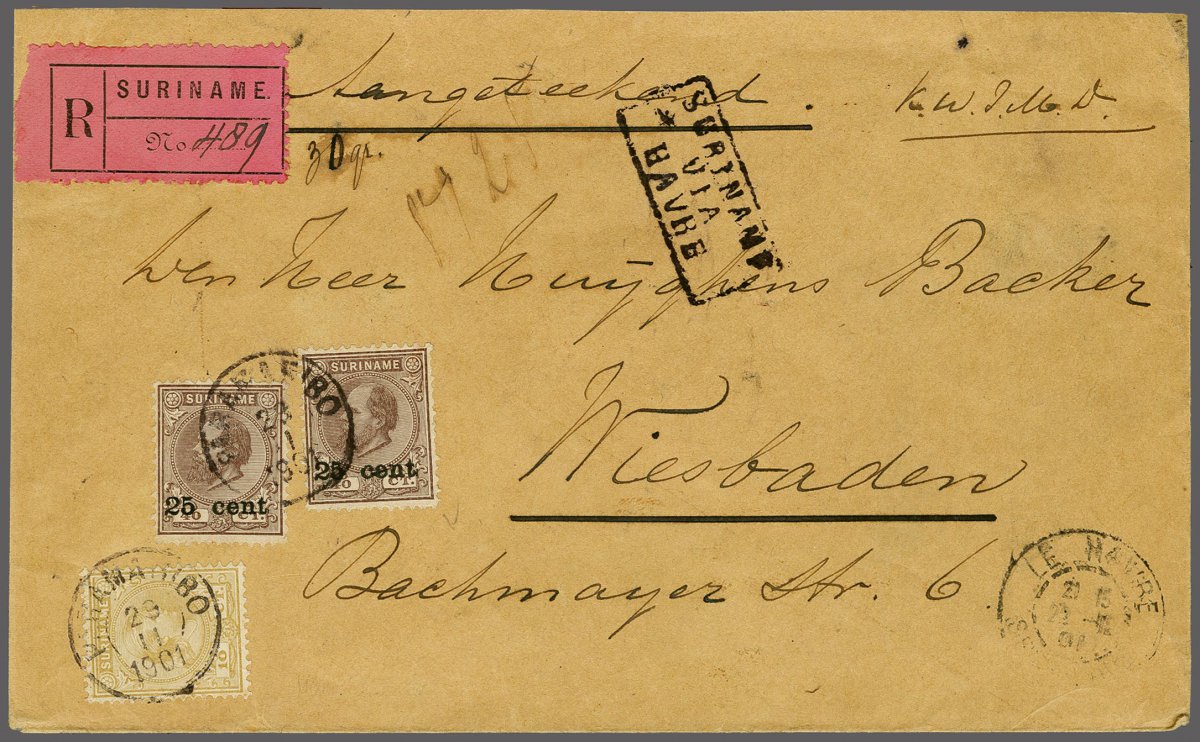 R
SURINAME.
No 489
Aangeteekend.
K.W.I.M.D.
30 gr.
SURINAME
VIA
HAVRE
Den Heer Huyghens Backer
Wiesbaden
Bachmayer str. 6.
SURINAME
25 cent
40 CT.
SURINAME
25 cent
40 CT.
PARAMARIBO
28
PARAMARIBO
28
11
1901
SURINAME
10
LE HAVRE
21
01